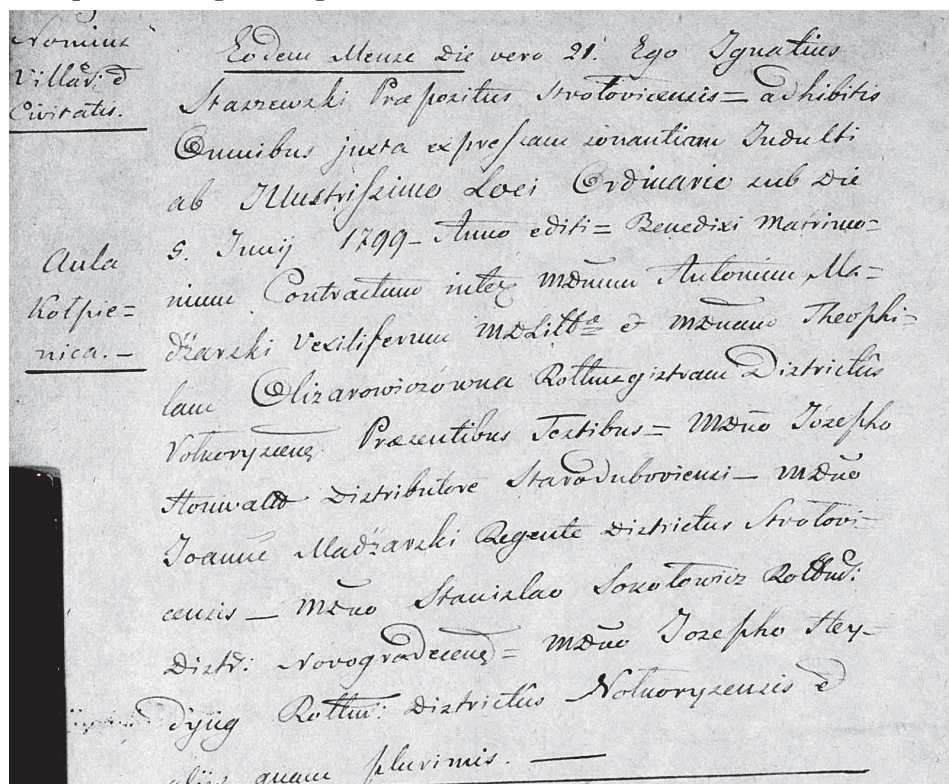 Nomina
Villar: et
Civitatis.
Aula
Kołpie=
nica. –
Eodem Mense Die vero 21. Ego Ignatius
Staszewski Præpositus Strołovicensis = adhibitis
Omnibus juxta expressam sonantiam Indulti
ab Illustrissimo Loci Ordinario sub Die
5. Junij 1799 – Anno editi = Benedixi Matrimo=
nium Contractum inter MDnum Antonium Ma=
dżarski Vexiliferum MDLittæ et MDnam Theophi=
lam Olizarowiczówna Rottmagistram Districtûs
Præsentibus Testibus = MDno Józepho
Houwalt Distributore Staroduboviensi – MDno
Joanne Madżarski Regente Districtus Strołovi=
censis – MDno Stanislao Sokołowicz Rottm:
Distr: Novogrodecens = MDno Josepho Hey=
Rottm: Districtûs et
alijs quam plurimis. –